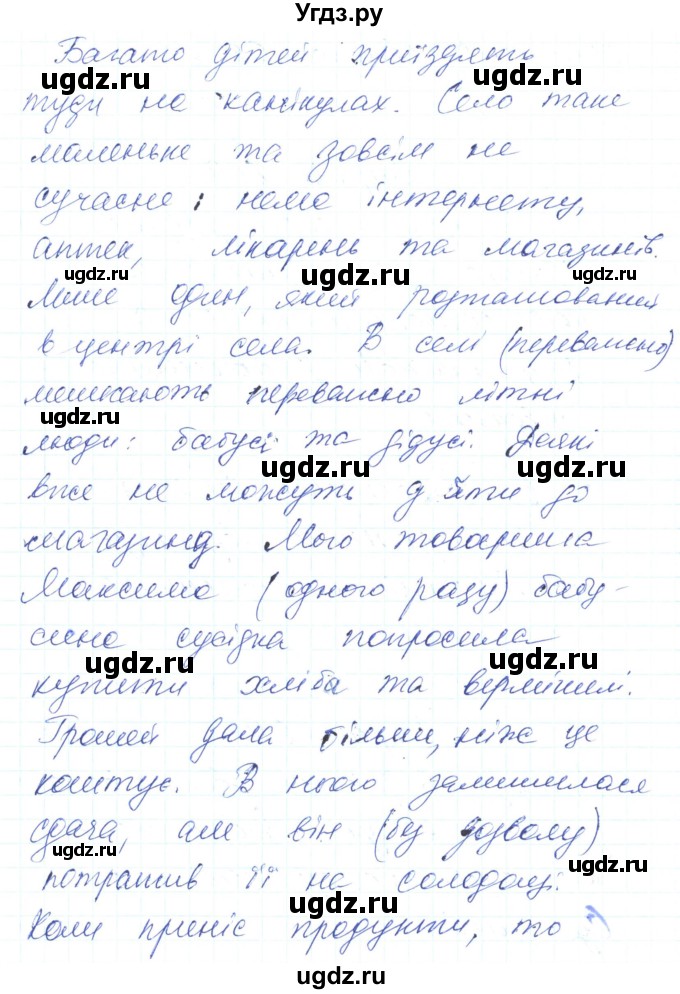 Угдз.ру
Багато дітей приїздять
ugdz.ru ugdz.ru
туди на канікулах. Село таке
маленьке та зовсім не
ugdz.ru
сучасне: нема інтернету,
аптек, лікарень та магазинів.
ugdz.ru ugdz.ru ugdz.ru
Лише один, який розташований
в центрі села. В селі (переважно)
ugdz.ru
мешкають переважно літні
ugdz.ru
люди: бабусі та дідусі. Деякі
ugdz.ru ugdz.ru
вже не можуть дійти до
магазину. Мого товариша
ugdz.ru
Максима (одного разу) бабу-
сина сусідка попросила
ugdz.ru ugdz.ru
купити хліба та вермішелі.
ugdz.ru
Грошей дала більши, ніж це
коштує. В нього залишилася
ugdz.ru
здача, але він (без дозволу)
ugdz.ru ugdz.ru
потратив її на солодощі.
ugdz.ru
Коли приніс продукти, то
ugdz.ru